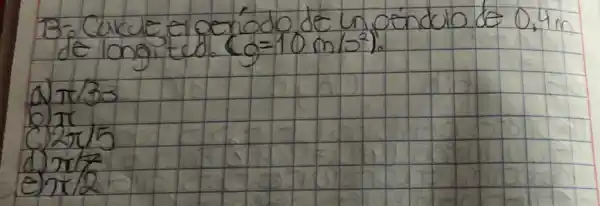 B- Calcule el período de un péndulo de 0,4m
de longitud. (g=10 m/s²).
a) π/3s
b) π
c) 2π/5
d) π/7
e) π/2